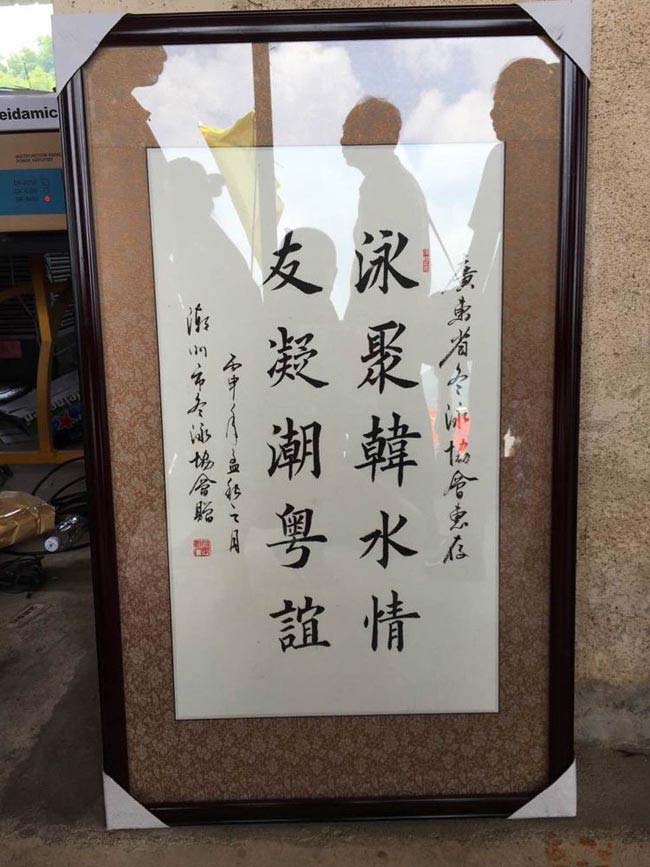 廣東省冬泳協會惠存
泳聚韓水情
友凝潮粤誼
丙申年孟秋之月
潮州市冬泳協會贈
eidamic